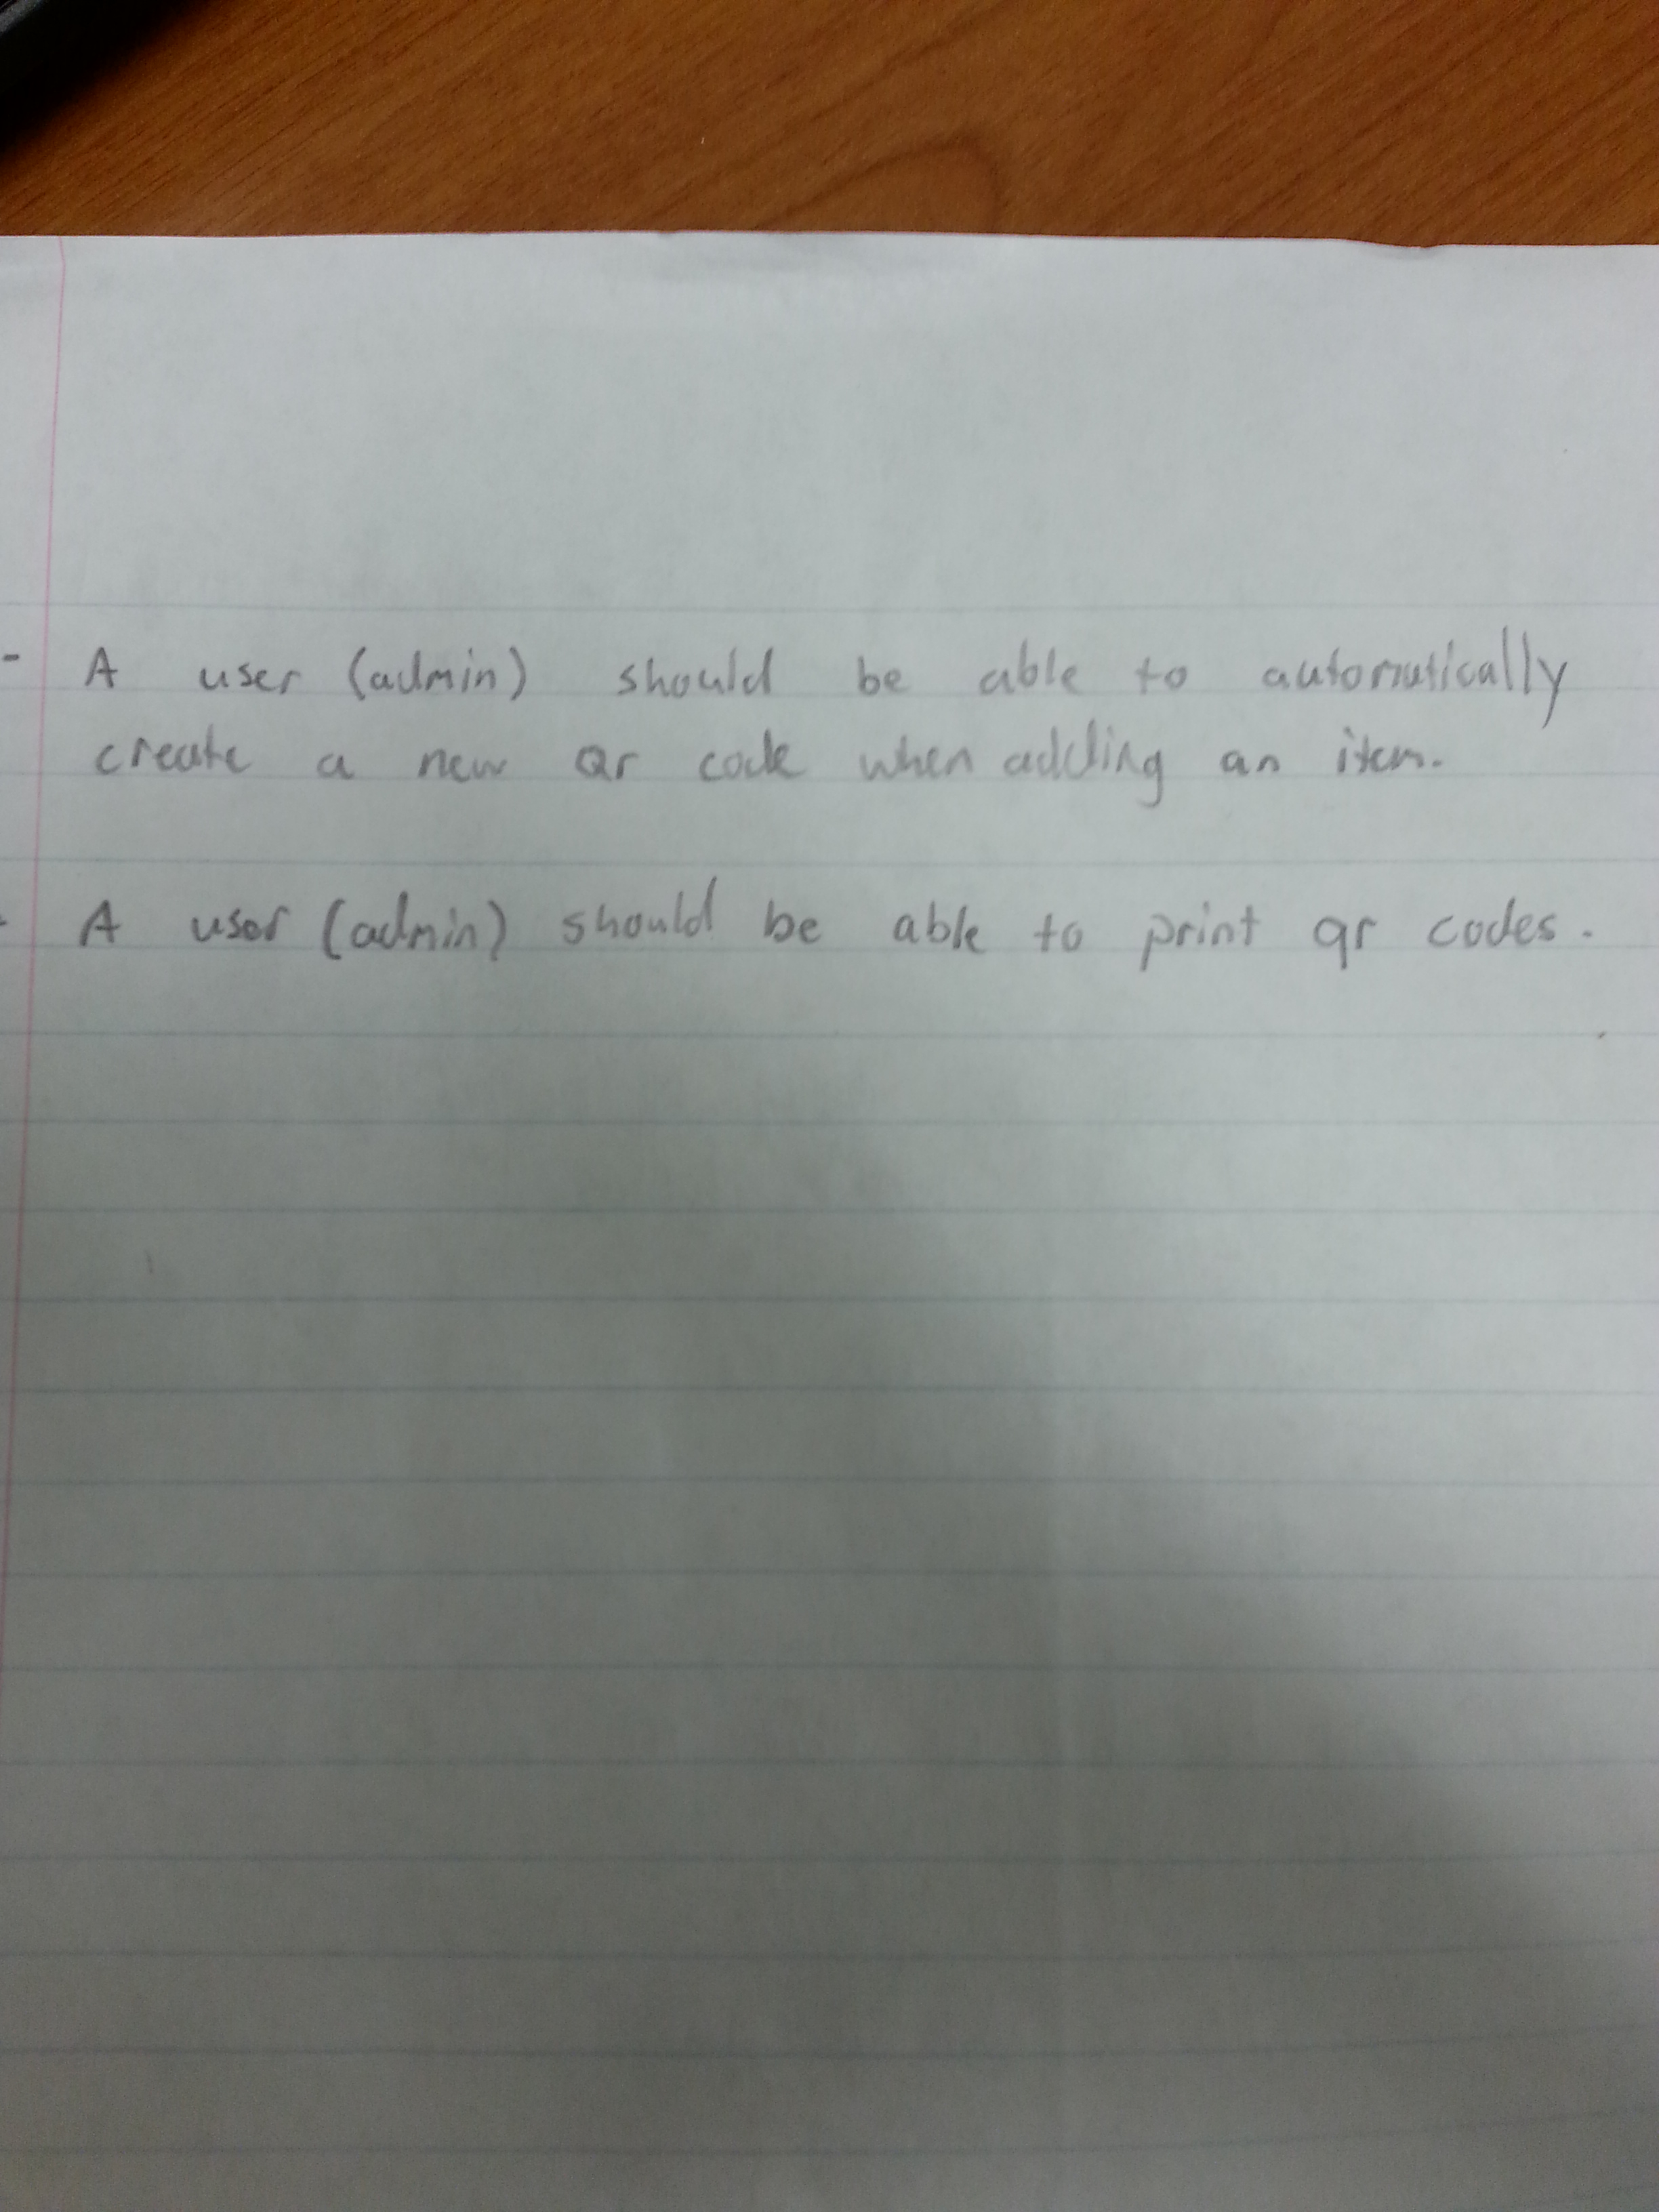 - A user (admin) should be able to automatically
create a new Qr code when adding an item.
- A user (admin) should be able to print qr codes.